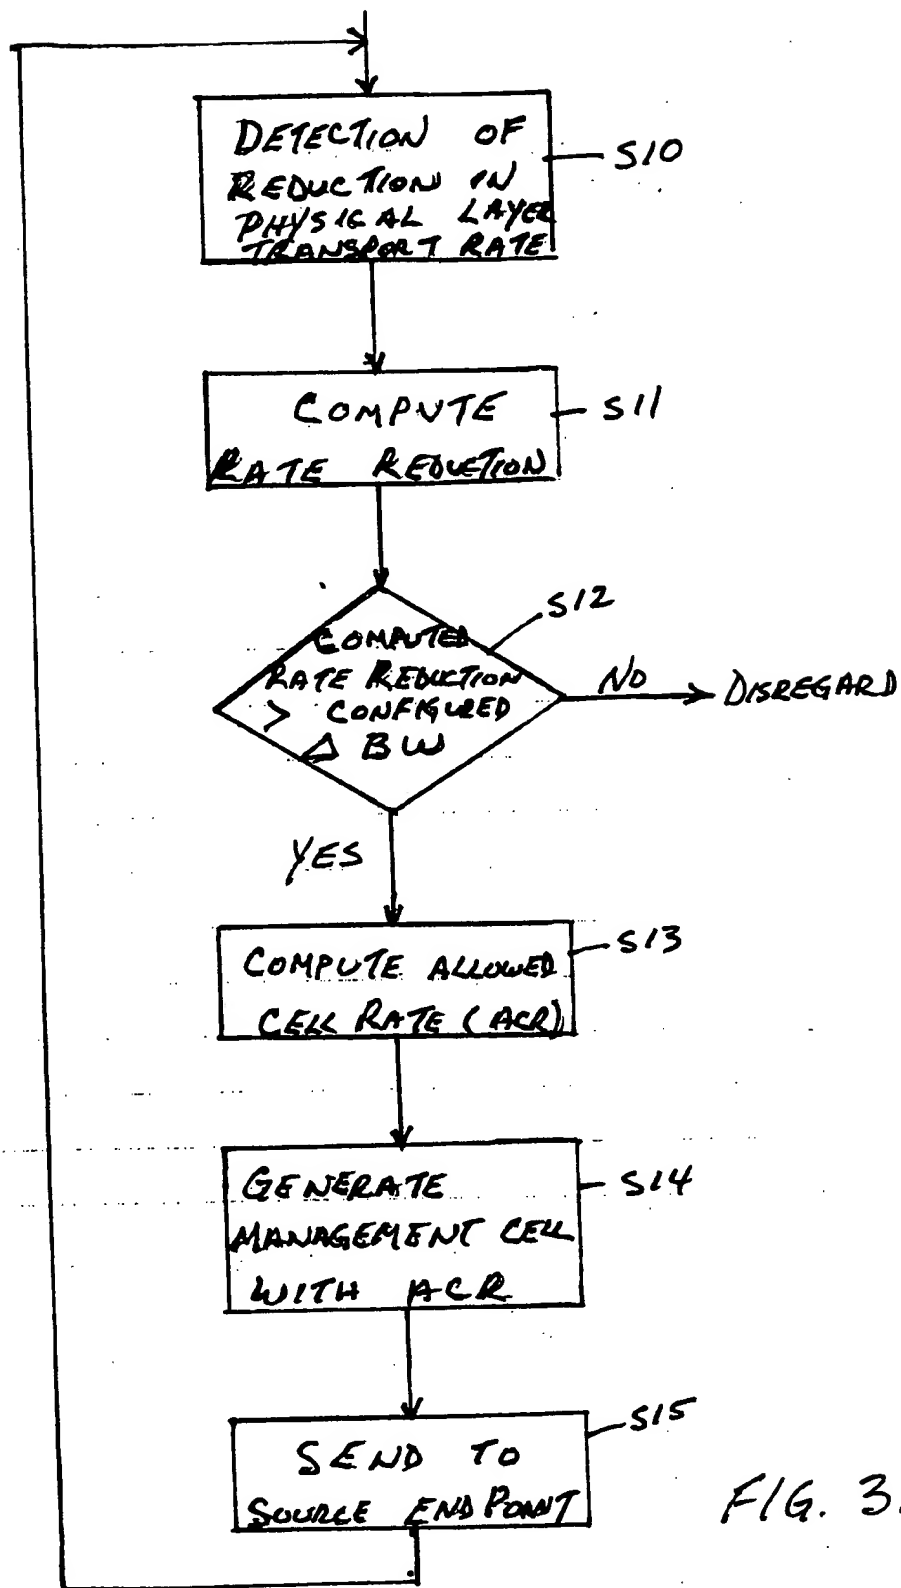 DETECTION OF
REDUCTION IN
PHYSICAL LAYER
TRANSPORT RATE
S10
COMPUTE
RATE REDUCTION
S11
S12
COMPUTED
RATE REDUCTION
> CONFIGURED
Δ BW
NO
DISREGARD
YES
COMPUTE ALLOWED
CELL RATE (ACR)
S13
GENERATE
MANAGEMENT CELL
WITH ACR
S14
SEND TO
SOURCE ENDPOINT
S15
FIG. 3.